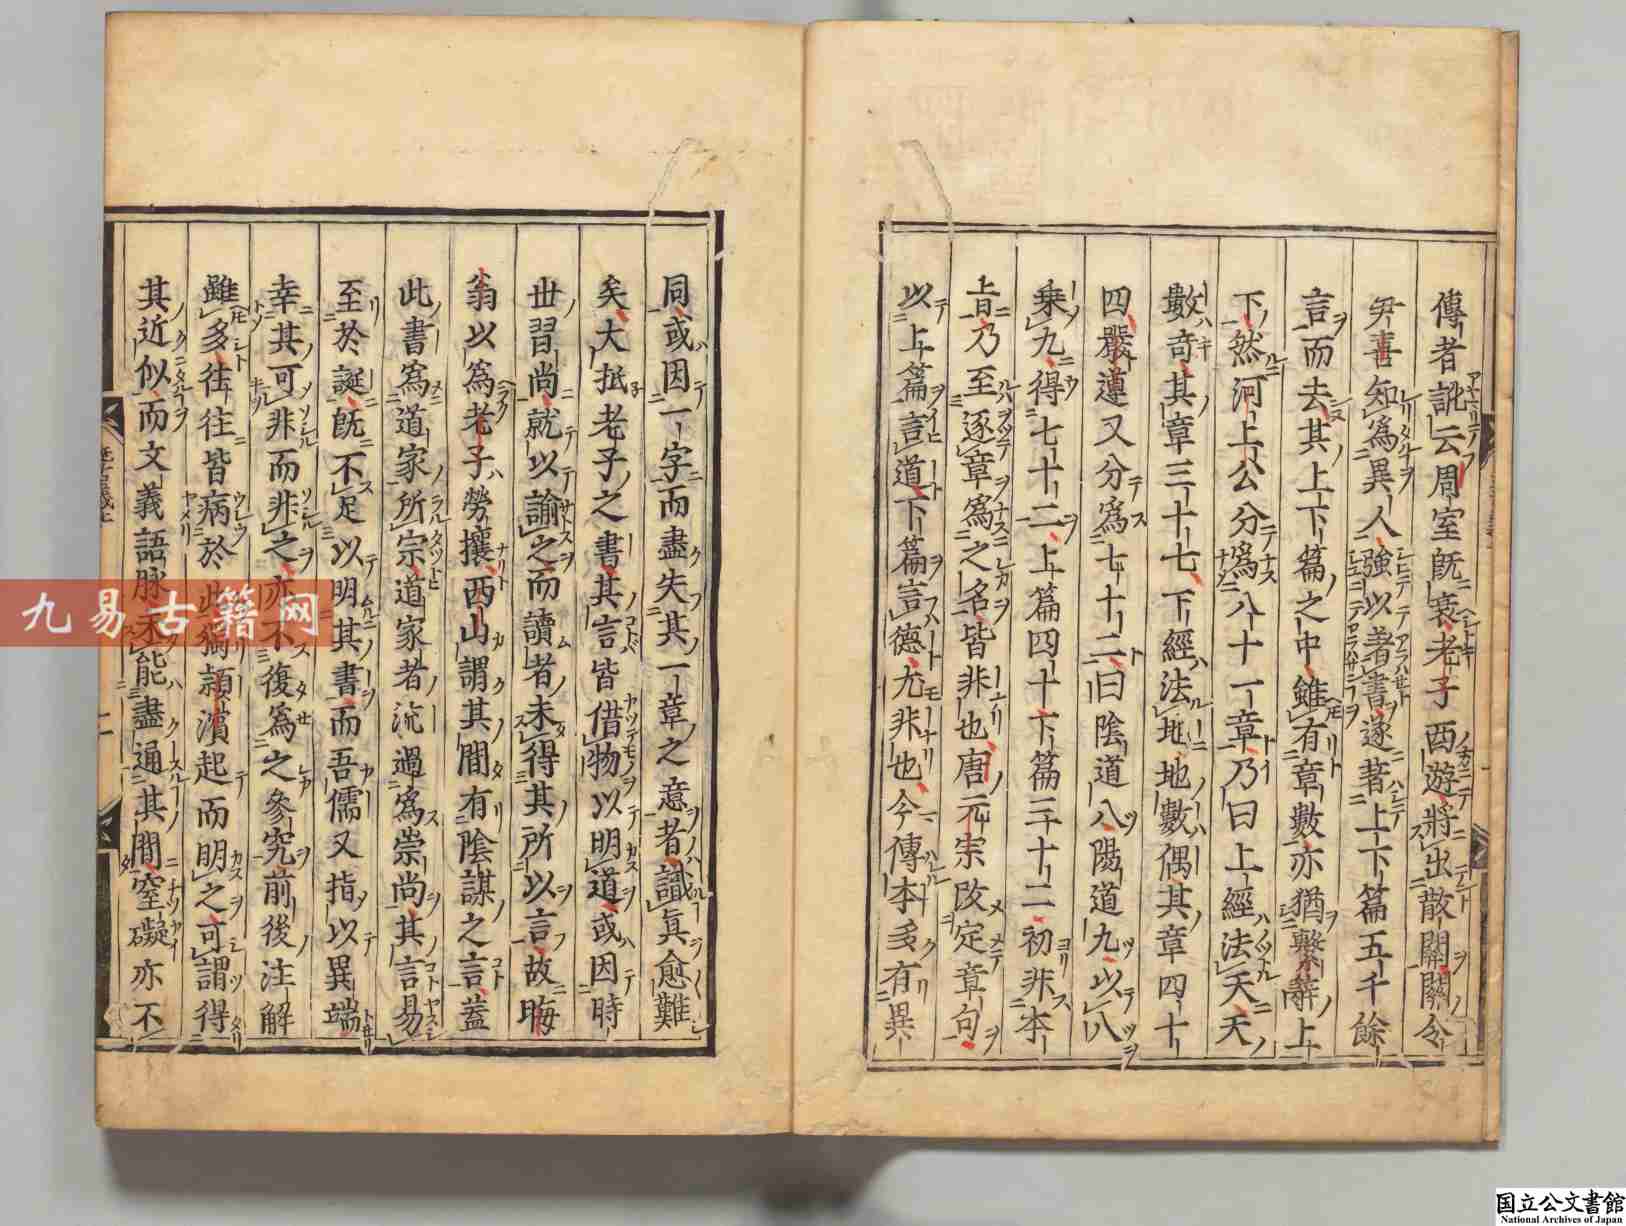 傳者訛云周室既衰老子西遊將出散關關令
尹喜知爲異人強以著書遂著上下篇五千餘
言而去其上下篇之中雖有章數亦猶繫辭上
下然河上公分爲八十一章乃曰上經法天天
數奇其章三十七下經法地地數偶其章四十
四嚴遵又分爲七十二曰陰道八陽道九以八
乘九得七十二上篇四十下篇三十二初非本
旨乃至逐章爲之名皆非也唐元宗改定章句
以上篇言道下篇言德尤非也今傳本多有異
同或因一字而盡失其一章之意者識眞愈難
矣大抵老子之書其言皆借物以明道或因時
世習尚就以諭之而讀者未得其所以言故晦
翁以爲老子勞攘西山謂其間有陰謀之言蓋
此書爲道家所宗道家者流過爲崇尚其言易
至於誕既不足以明其書而吾儒又指以異端
幸其可非而非之亦不復爲之參究前後注解
雖多往往皆病於此獨頴濱起而明之可謂得
其近似而文義語脉未能盡通其間窒礙亦不
九易古籍网
国立公文書館
National Archives of Japan